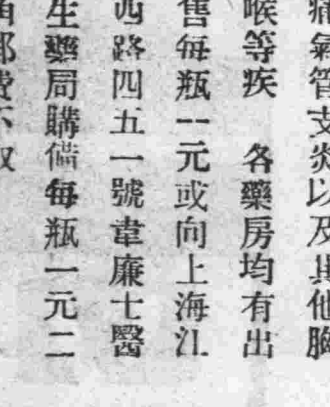 痛氣管支炎以及其他胸
喉等疾　各藥房均有出
售每瓶一元或向上海江
西路四五一號韋廉士醫
生藥局購備每瓶一元二
函郵費不收